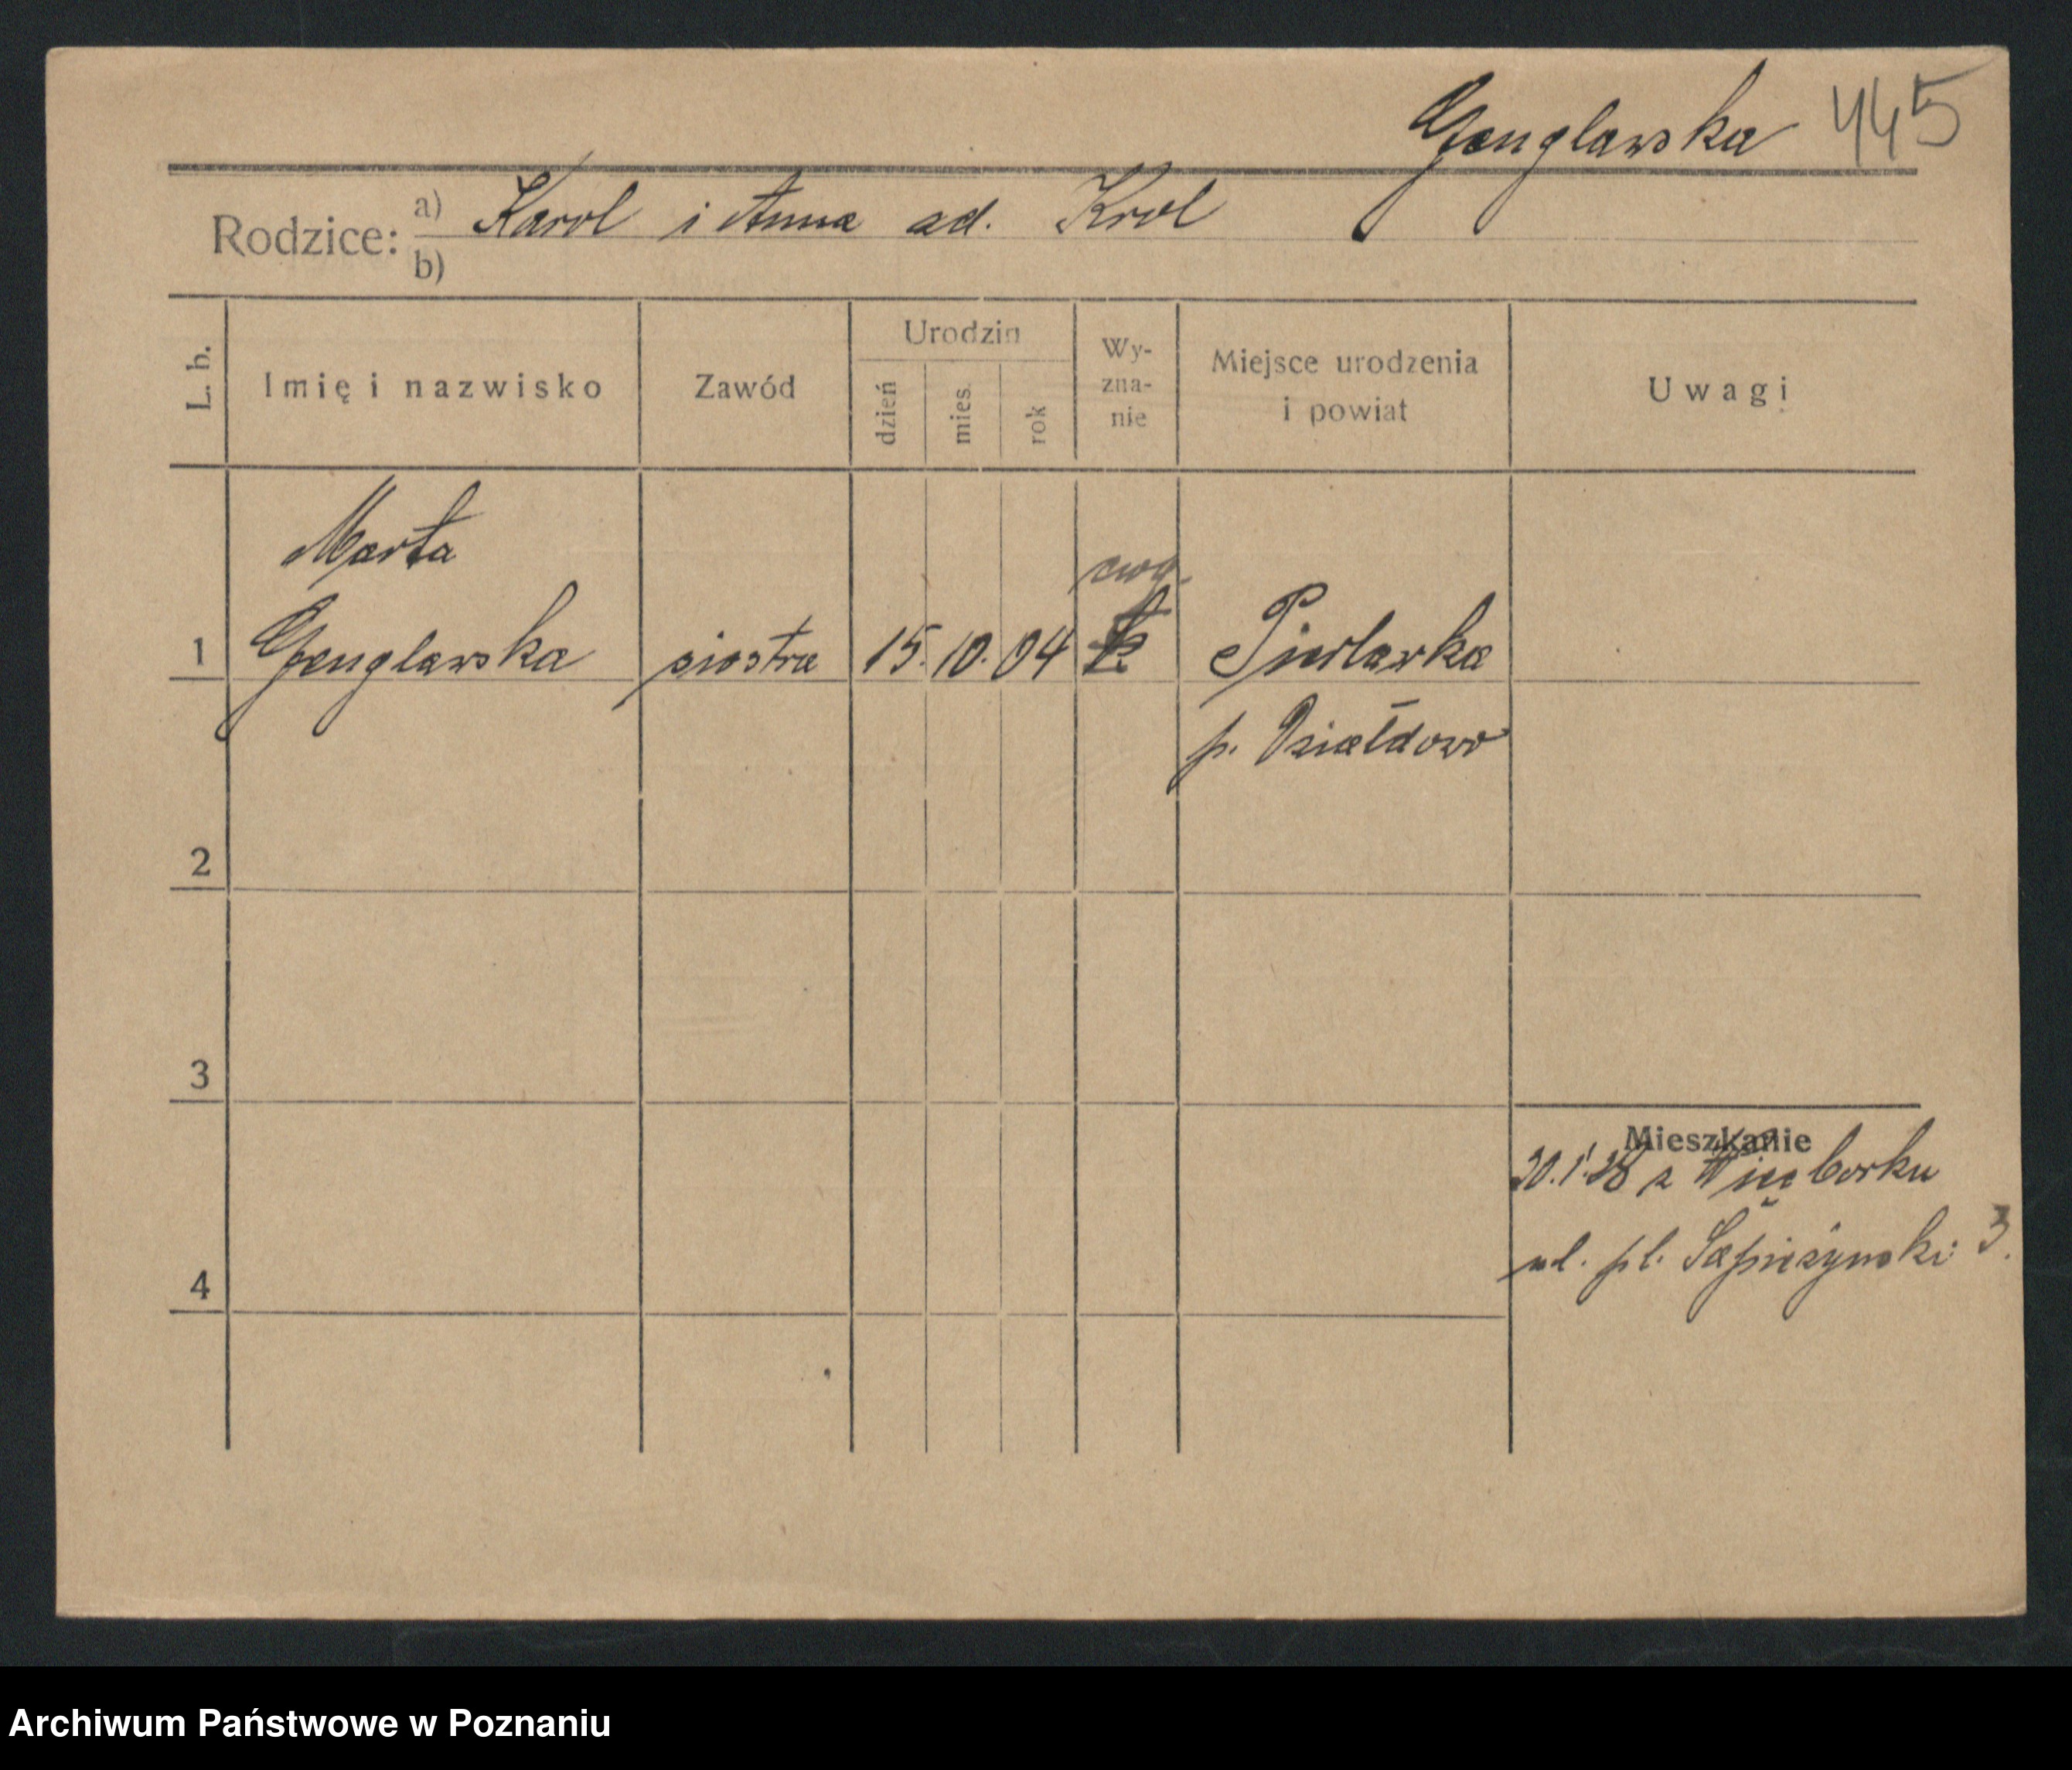 Genglawska 445
Rodzice: a) Karol i Anna zd. Krol
b)
L. b. Imię i nazwisko Zawód Urodzin dzień mies. rok Wy-zna-nie Miejsce urodzenia i powiat Uwagi
Marta
ewg.
1 Genglawska siostra 15. 10. 04 Pierławka
p. Działdowo
2
3
Mieszkanie
30.1.28 z Więcborku
4 ul. pl. Sapieżynski 3.
Archiwum Państwowe w Poznaniu